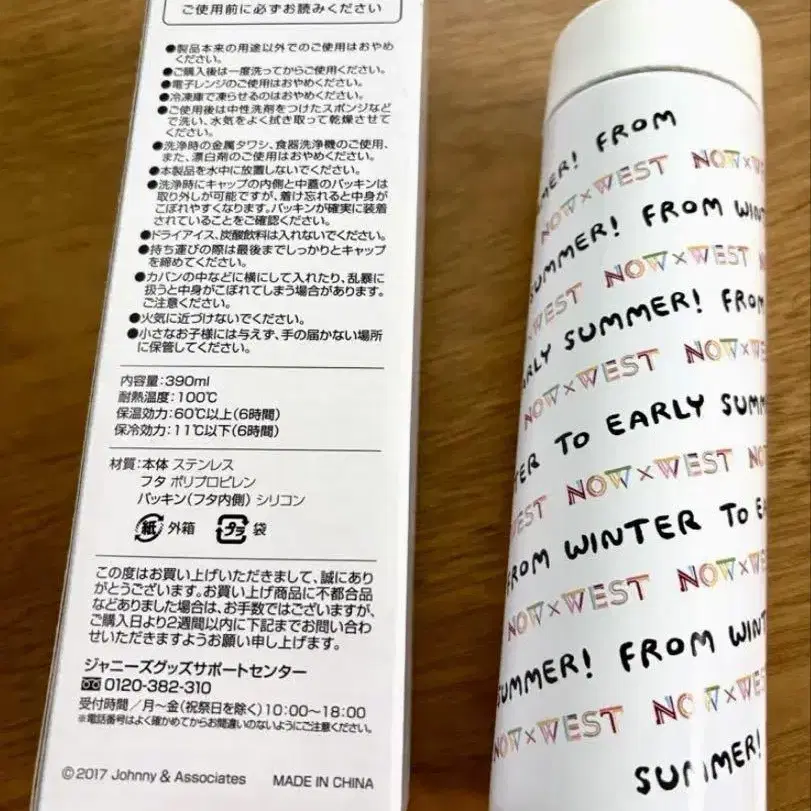 ご使用前に必ずお読みください
●製品本来の用途以外でのご使用はおやめ
ください。
●ご購入後は一度洗ってからご使用ください。
●電子レンジのご使用はおやめください。
●冷凍庫で凍らせるのはおやめください。
●ご使用後は中性洗剤をつけたスポンジなど
で洗い、水気をよく拭き取って乾燥させて
ください。
●洗浄時の金属タワシ、食器洗浄機のご使用、
また、漂白剤のご使用はおやめください。
●本製品を水中に放置しないでください。
●洗浄時にキャップの内側と中蓋のパッキンは
取り外しが可能ですが、着け忘れると中身が
こぼれやすくなります。パッキンが確実に装着
されていることをご確認ください。
●ドライアイス、炭酸飲料は入れないでください。
●持ち運びの際は最後までしっかりとキャップ
を締めてください。
●カバンの中などに横にして入れたり、乱暴に
扱うと中身がこぼれてしまう場合があります。
ご注意ください。
●火気に近づけないでください。
●小さなお子様には与えず、手の届かない場所
に保管してください。
内容量:390ml
耐熱温度:100℃
保温効力:60℃以上(6時間)
保冷効力:11℃以下(6時間)
材質:本体 ステンレス
フタ ポリプロピレン
パッキン(フタ内側) シリコン
紙 外箱 プラ 袋
この度はお買い上げいただきまして、誠にあり
がとうございます。お買い上げ商品に不都合品
などありました場合は、お手数ではございますが、
ご購入日より2週間以内に下記までお問い合わ
せいただきますようお願い申し上げます。
ジャニーズグッズサポートセンター
0120-382-310
受付時間／月〜金(祝祭日を除く)10:00〜18:00
※電話番号はよく確かめてからお間違いのないようにご注意ください。
©2017 Johnny & Associates MADE IN CHINA
MMER! FROM
NOW×WEST NOW×W
SUMMER! FROM WINT
WEST NOW×WEST N
ARLY SUMMER! FROM
NOW×WEST NOW×WE
TER TO EARLY SUMM
WEST NOW×WEST NO
FROM WINTER TO EA
NOW×WEST NOW×W
SUMMER! FROM WINT
NOW×WEST NOW×WE
SUMMER!